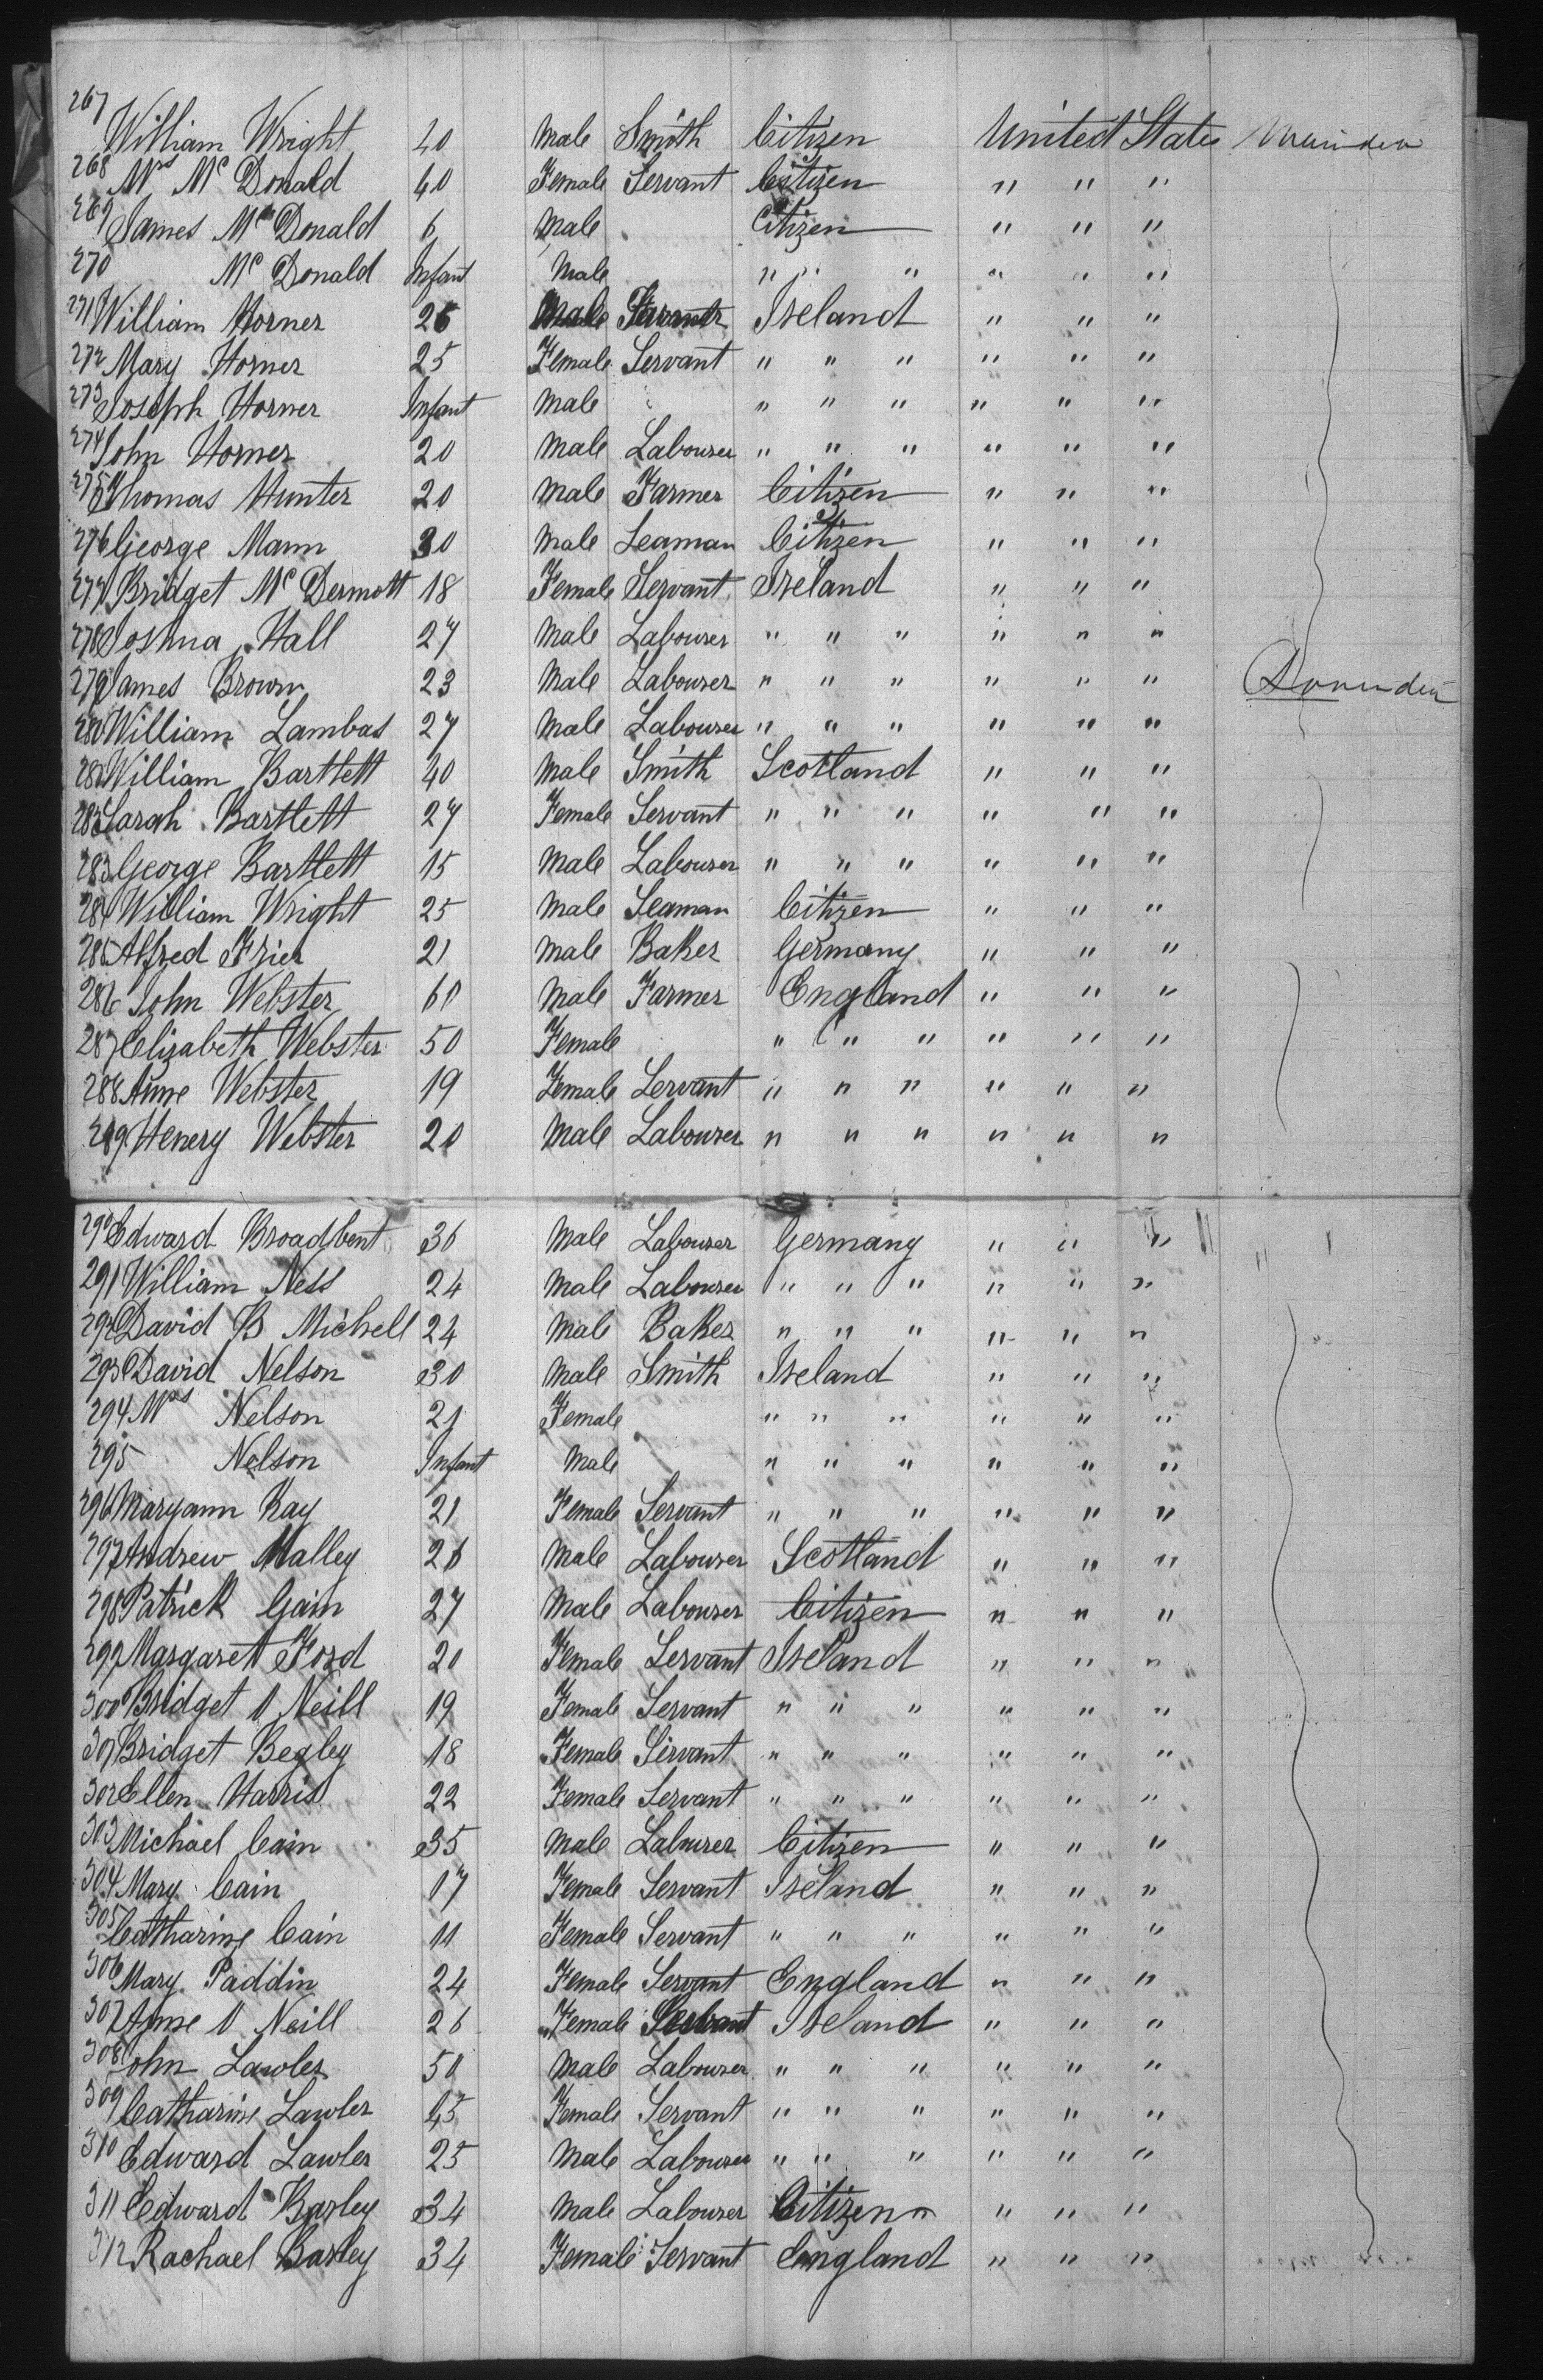 267 William Wright 40 Male Smith Citizen United States
268 Mrs Mc Donald 40 Female Servant Citizen " " "
269 James Mc Donald 6 Male Citizen " " "
270 Mc Donald Infant Male " " " " " "
271 William Horner 26 Male Ireland " " "
272 Mary Horner 25 Female Servant " " " " " "
273 Joseph Horner Infant Male " " " " " "
274 John Horner 20 Male Labourer " " " " " "
275 Thomas Hunter 20 Male Farmer Citizen " " "
276 George Mann 30 Male Seaman Citizen " " "
277 Bridget Mc Dermott 18 Female Servant Ireland " " "
278 Joshua Hall 27 Male Labourer " " " " " "
279 James Brown 23 Male Labourer " " " " " "
280 William Lambas 27 Male Labourer " " " " " "
281 William Bartlett 40 Male Smith Scotland " " "
282 Sarah Bartlett 27 Female Servant " " " " " "
283 George Bartlett 15 Male Labourer " " " " " "
284 William Wright 25 Male Seaman Citizen " " "
285 Alfred Frier 21 Male Baker Germany " " "
286 John Webster 60 Male Farmer England " " "
287 Elizabeth Webster 50 Female " " " " " "
288 Anne Webster 19 Female Servant " " " " " "
289 Henery Webster 20 Male Labourer " " " " " "
290 Edward Broadbent 36 Male Labourer Germany " " "
291 William Ness 24 Male Labourer " " " " " "
292 David B Michell 24 Male Baker " " " " " "
293 David Nelson 30 Male Smith Ireland " " "
294 Mrs Nelson 21 Female " " " " " "
295 Nelson Infant Male " " " " " "
296 Maryann Kay 21 Female Servant " " " " " "
297 Andrew Malley 26 Male Labourer Scotland " " "
298 Patrick Gain 27 Male Labourer Citizen " " "
299 Margaret Ford 20 Female Servant Ireland " " "
300 Bridget O Neill 19 Female Servant " " " " " "
301 Bridget Begley 18 Female Servant " " " " " "
302 Ellen Harris 22 Female Servant " " " " " "
303 Michael Cain 35 Male Labourer Citizen " " "
304 Mary Cain 17 Female Servant Ireland " " "
305 Catharine Cain 11 Female Servant " " " " " "
306 Mary Paddin 24 Female Servant England " " "
307 Anne O Neill 26 Female Servant Ireland " " "
308 John Lawler 50 Male Labourer " " " " " "
309 Catharine Lawler 45 Female Servant " " " " " "
310 Edward Lawler 25 Male Labourer " " " " " "
311 Edward Barley 34 Male Labourer Citizen " " "
312 Rachael Barley 34 Female Servant England " " "